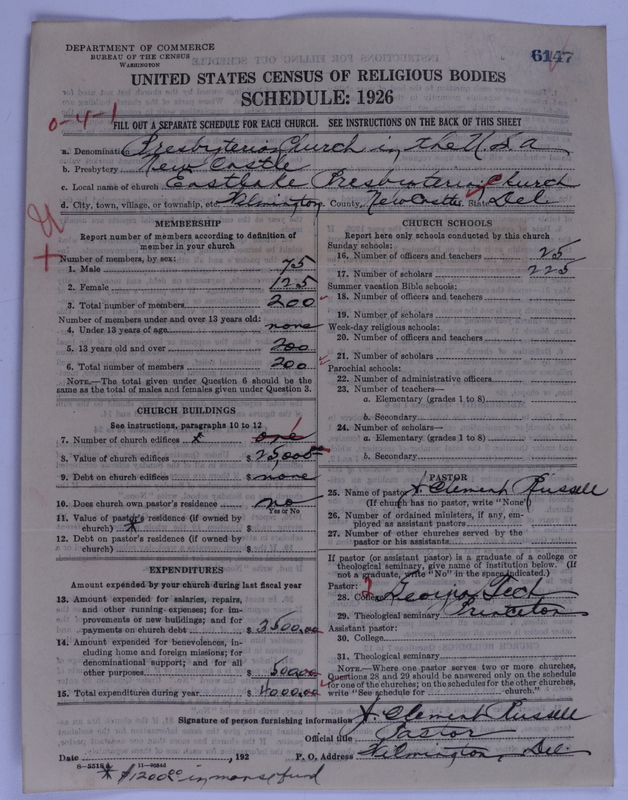 DEPARTMENT OF COMMERCE
BUREAU OF THE CENSUS
WASHINGTON
6147
UNITED STATES CENSUS OF RELIGIOUS BODIES
SCHEDULE: 1926
0-4-1
FILL OUT A SEPARATE SCHEDULE FOR EACH CHURCH. SEE INSTRUCTIONS ON THE BACK OF THIS SHEET
a. Denomination Presbyterian Church in the U.S.A
b. Presbytery New Castle
c. Local name of church Eastlake Presbyterian Church
d. City, town, village, or township, etc. Wilmington County, New Castle State Del.
MEMBERSHIP
Report number of members according to definition of
member in your church
Number of members, by sex:
1. Male 75
2. Female 125
3. Total number of members 200
Number of members under and over 13 years old:
4. Under 13 years of age none
5. 13 years old and over 200
6. Total number of members 200
NOTE.—The total given under Question 6 should be the
same as the total of males and females given under Question 3.
CHURCH BUILDINGS
See instructions, paragraphs 10 to 12
7. Number of church edifices one 1
8. Value of church edifices $ 25,000.00
9. Debt on church edifices $ none
10. Does church own pastor's residence no
Yes or No
11. Value of pastor's residence (if owned by
church) $
12. Debt on pastor's residence (if owned by
church) $
EXPENDITURES
Amount expended by your church during last fiscal year
13. Amount expended for salaries, repairs,
and other running expenses; for im-
provements or new buildings; and for
payments on church debt $ 3500.00
14. Amount expended for benevolences, in-
cluding home and foreign missions; for
denominational support; and for all
other purposes $ 500.00
15. Total expenditures during year $ 4000.00
CHURCH SCHOOLS
Report here only schools conducted by this church
Sunday schools:
16. Number of officers and teachers 25
17. Number of scholars 225
Summer vacation Bible schools:
18. Number of officers and teachers
19. Number of scholars
Week-day religious schools:
20. Number of officers and teachers
21. Number of scholars
Parochial schools:
22. Number of administrative officers
23. Number of teachers—
a. Elementary (grades 1 to 8)
b. Secondary
24. Number of scholars—
a. Elementary (grades 1 to 8)
b. Secondary
PASTOR
25. Name of pastor A. Clement Russell
(If church has no pastor, write "None")
26. Number of ordained ministers, if any, em-
ployed as assistant pastors
27. Number of other churches served by the
pastor or his assistants
If pastor (or assistant pastor) is a graduate of a college or
theological seminary, give name of institution below. (If
not a graduate, write "No" in the space indicated.)
Pastor:
28. College Georgia Tech
29. Theological seminary Princeton
Assistant pastor:
30. College
31. Theological seminary
NOTE.—Where one pastor serves two or more churches,
Questions 28 and 29 should be answered only on the schedule
for one of the churches; on the schedules for the other churches,
write "See schedule for church."
Signature of person furnishing information A. Clement Russell
Official title Pastor
Date , 192 P. O. Address Wilmington, Del.
11—9054
* $1200.00 in manse fund